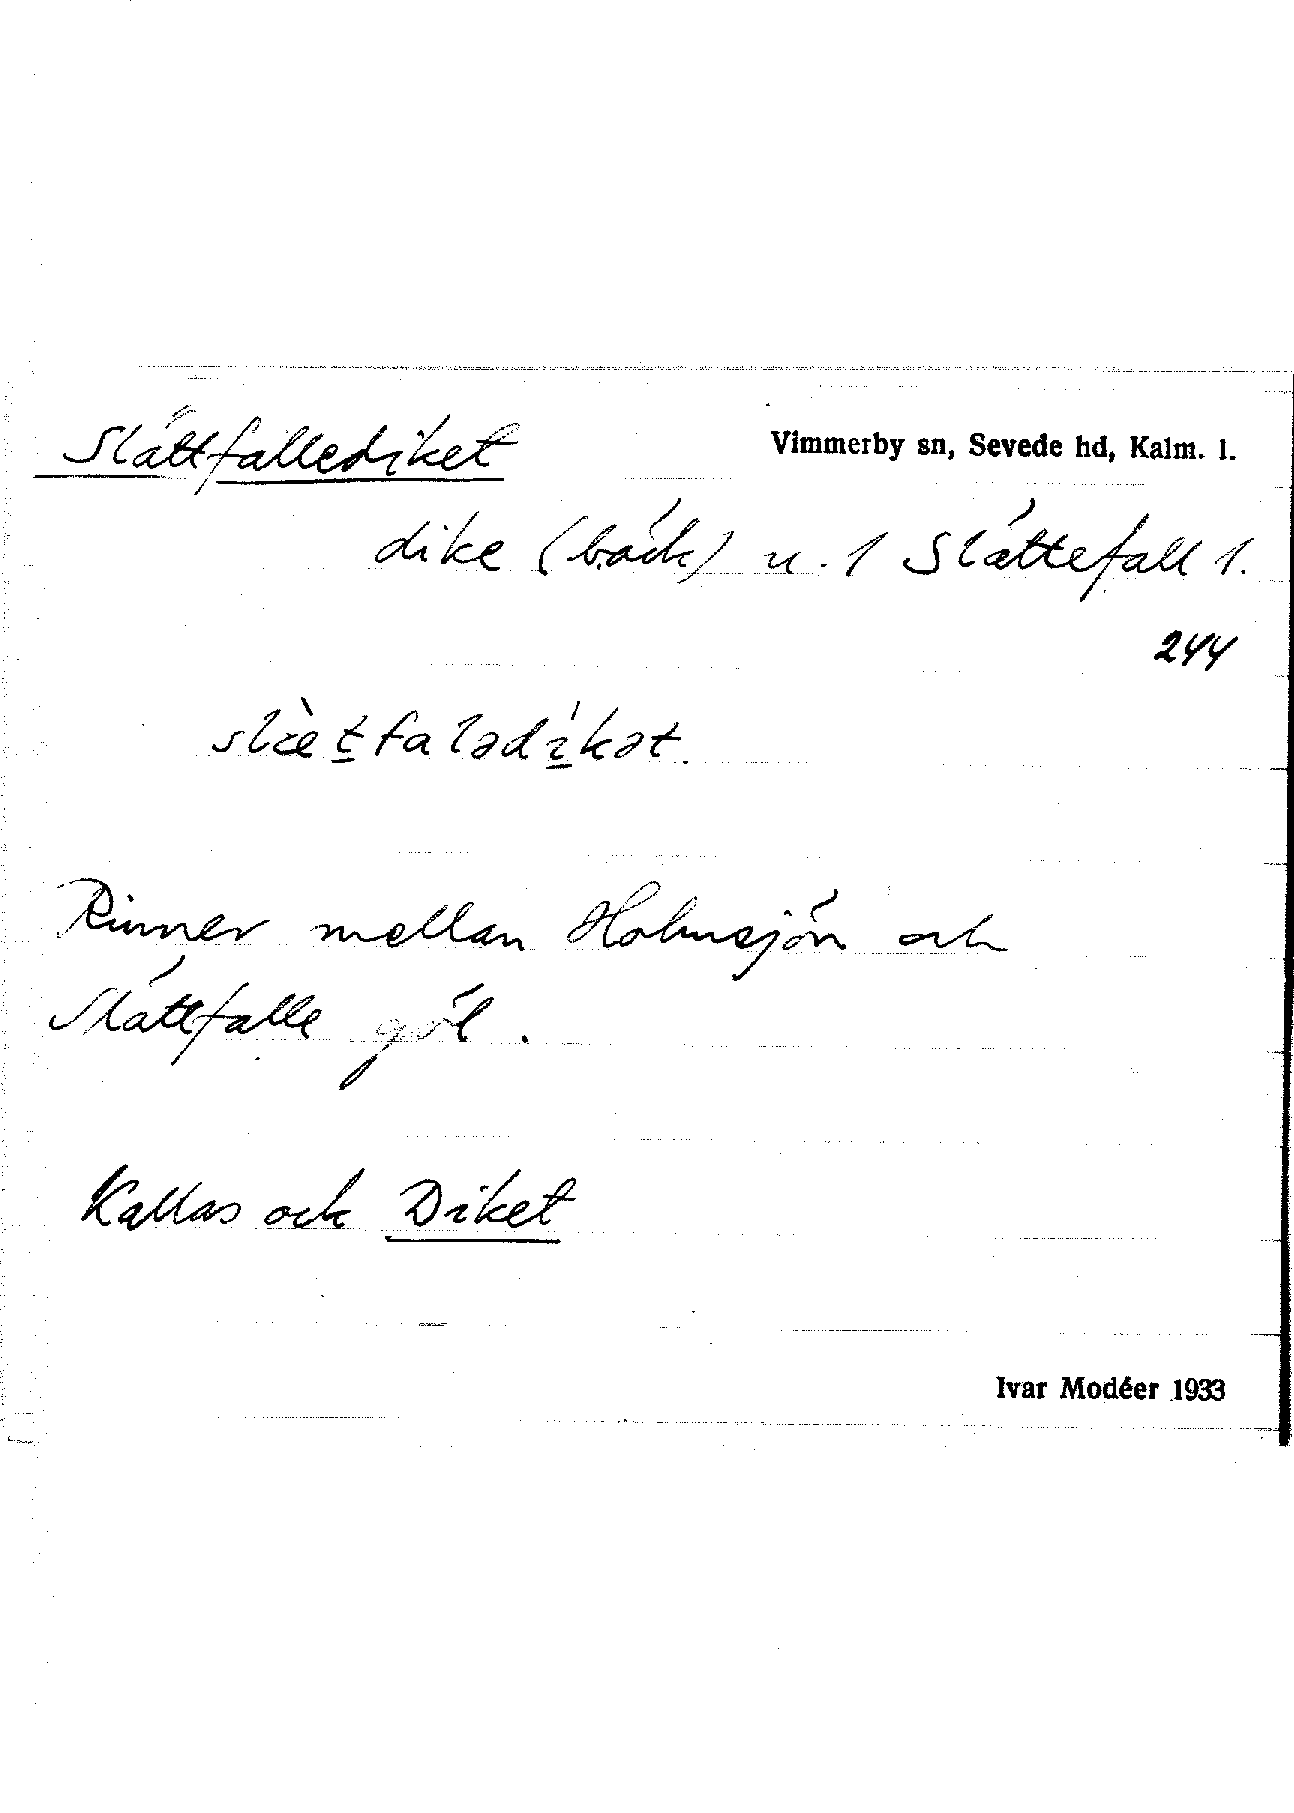 Slättfallediket
Vimmerby sn, Sevede hd, Kalm. l.
dike (bäck) u. 1 Slättefall 1.
244
slæ̀t̲faləd<u>í</u>kət.
Rinner mellan Holmsjön och
Slättfalle göl.
Kallas ock Diket
Ivar Modéer 1933